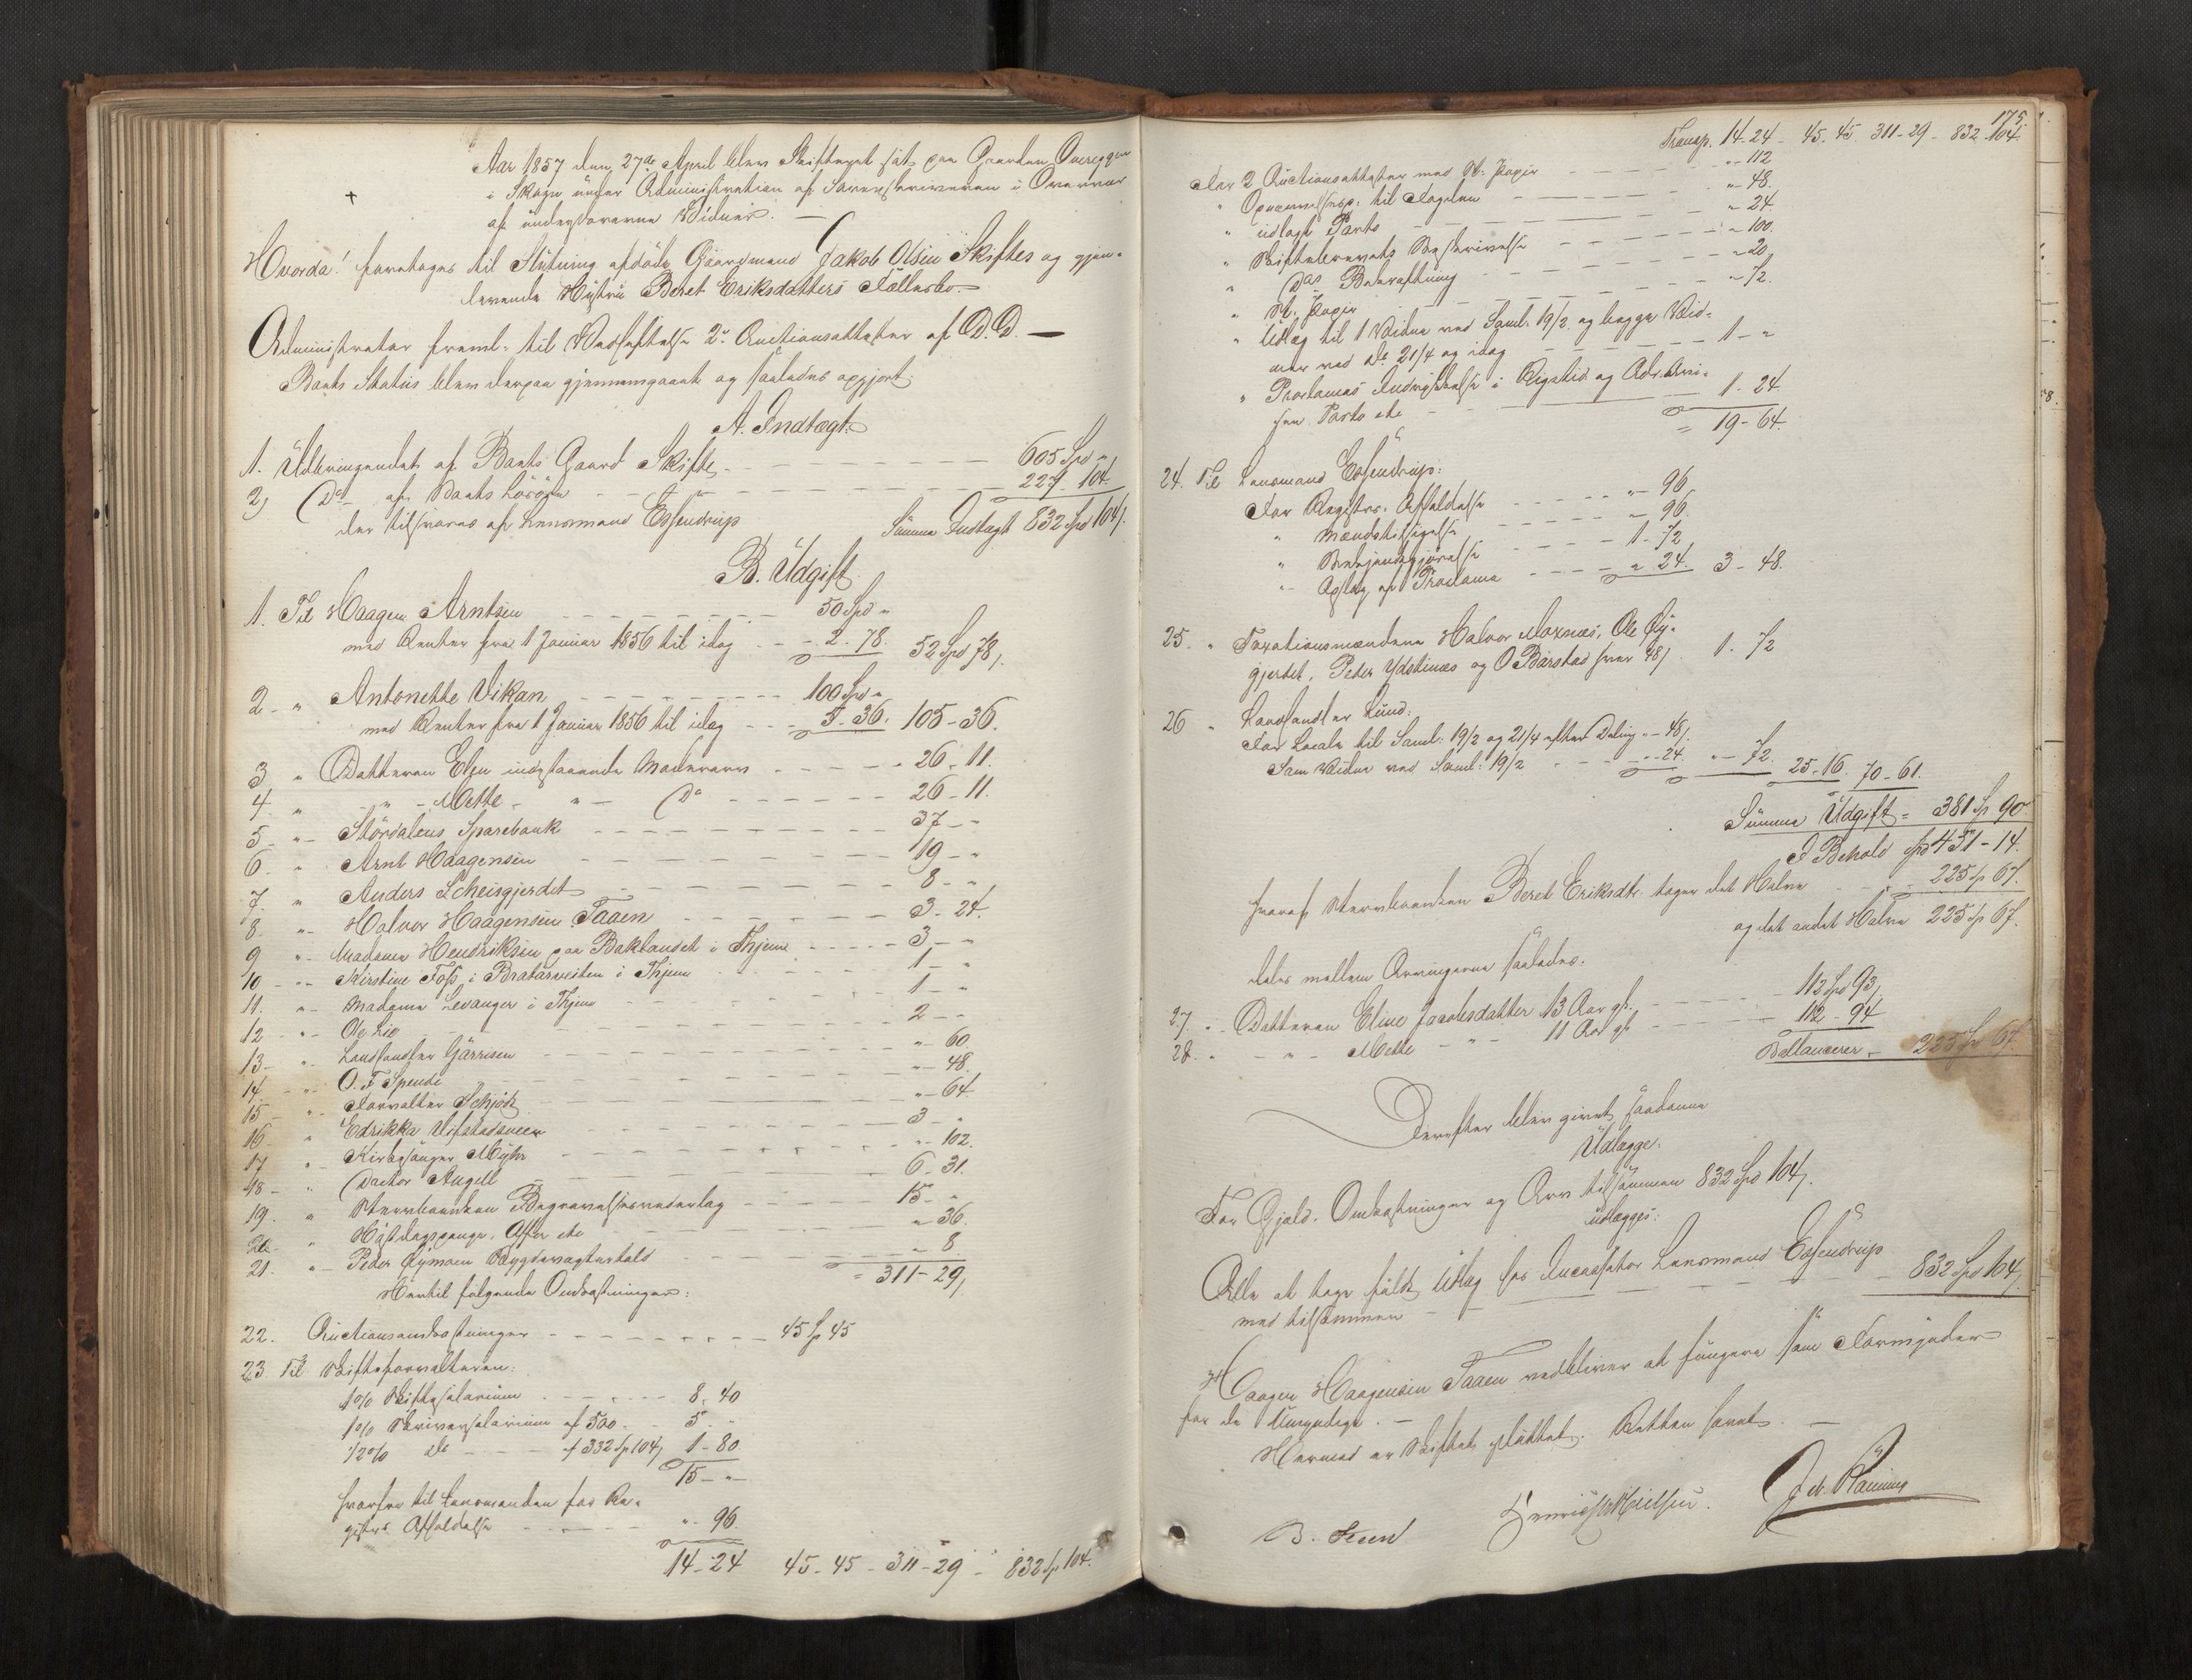 Aar 1857 den 27de April blev Skifteret sat paa Gaarden Overeggen
i Skogn under Administration af Sorenskriveren i Overvær
af underskrevne Vidner. —
Hvorda! foretoges til Slutning afdøde Gaardmand Jakob Olsen Skiftes og gjen-
levende Hustru Beret Eriksdatters Fællesbo. —
Administrator freml. til Vedheftelse 2 Auctionsattester af D. D. —
Boets Status blev derpaa gjennemgaaet og saaledes opgjort:
A. Indtægt.
1. Udbringendet af Boets Gaard Skifte 605 Spd „
2, Do af Boets Løsøre 227 - 104.
der tilsvares af Lensmand Essendrup Summa Indtægt 832 Spd 104/.
B. Udgift
1. Til Haagen Arntsen 50 Spd „
med Renter fra 1 Januar 1856 til idag 2 - 78. 52 Spd 78/.
2 „ Antonette Vikan 100 Spd „
med Renter fra 1 Januar 1856 til idag 5 - 36. 105 - 36.
3 „ Datteren Elen indestaaende Mødrearv 26 - 11.
4 „ — „ — Mette — „ — Do 26 - 11.
5 „ Størdalens Sparebank 37 - „
6 „ Arnt Haagensen 19 - „
7 „ Anders Scheisgjerdet 8 - „
8 „ Halvor Haagensen Faaen 3 - 24.
9 „ Madame Hendriksen paa Baklandet i Thjem 3 - „
10 „ Kirstine Foss i Bratørveiten i Thjem 1 - „
11. „ Madame Levanger i Thjem 1 - „
12 „ Ole Lie 2 - „
13 „ Landhandler Gärrisen „ - 60.
14 „ O. F. Spende „ - 48.
15 „ Forvalter Schjøth „ - 64.
16 „ Edrikka Ulfstadsveen 3 - „
17 „ Kirkesanger Myhr „ - 102.
18 „ Doctor Angell 6 - 31.
19. „ Stervboenken Begravelsesvederlag 15 - „
20 „ Høstdagspenge, Offer etc „ - 36.
21. „ Peder Rymoen Bygdevægterhold „ - 8
Hertil følgende Omkostninger: = 311 - 29/
22. Auctionsomkostninger 45 Sp 45
23. Til Skifteforvalteren:
1% Skiftesalarium 8 - 40
1% Skriversalarium af 500 5 - „
1/2% do af 332 Sp 104/ 1 - 80
15 - „
hvorfra til Lensmanden for Re-
gistrs. Afholdelse „ - 96.
14 - 24 45 - 45 - 311 - 29 - 832 Sp 104.
175.
Transp. 14 - 24 - 45 - 45. 311 - 29 - 832 - 104.
For 2 Auctionsattester med St. Papir „ - 112
„ Opnævnelsesp. til Fogden „ - 48.
„ udlagt Porto „ - 24
„ Skiftebrevets Beskrivelse „ - 100.
„ Dos Bekræftning „ - 20
„ St. Papir „ - 72.
„ Udlæg til 1 Vidne ved Saml. 19/2 og begge Vid-
ner ved do 21/4 og idag 1 - „
„ Proclamas Indrykkelse i Rigstid. og Adr.Avi-
sen Porto etc 1 - 24
= 19 - 64.
24. Til Lensmand Essendrup:
For Registrs. Afholdelse „ - 96
„ Mændstilsigelse „ - 96.
„ Bekjendtgjørelse 1 - 72
„ Opslag af Proclama „ 24. 3 - 48.
25. „ Taxationsmændene Halvor Moxnæs, Ole By-
gjerdet, Peder Ydstines og O Barstad hver 48/ 1 - 72
26 „ Landhandler Lund:
For Locale til Saml. 19/2 og 21/4 efter Deling „ - 48/.
Som Vidne ved Saml. 19/2 „ - 24. „ - 72. 25 - 16. 70 - 61.
Summa Udgift = 381 Sp. 90
I Behold Spd 451 - 14.
hvoraf Stervboenken Beret Eriksdtr. tager det Halve 225 Sp 67.
og det andet Halve 225 Sp 67.
deles mellem Arvingerne saaledes:
27. „ Datteren Eline Jacobsdatter 13 Aar gl. 112 Spd 93/
28. „ — „ — Mette — „ — 11 Aar gl. 112 - 94
Ballancerer 225 Sp 67.
Derefter blev givet saadanne
Udlægge.
For Gjeld, Omkostninger og Arv tilsammen 832 Spd 104/.
udlægges:
Alle at tage fuldt Udlæg hos Incassator Lensmand Essendrup
med tilsammen 832 Spd 104/
Haagen Haagensen Faaen vedbliver at fungere som Formynder
for de Umyndige. —
Hermed er Skiftet sluttet. Retten hævet. —
B. Steen